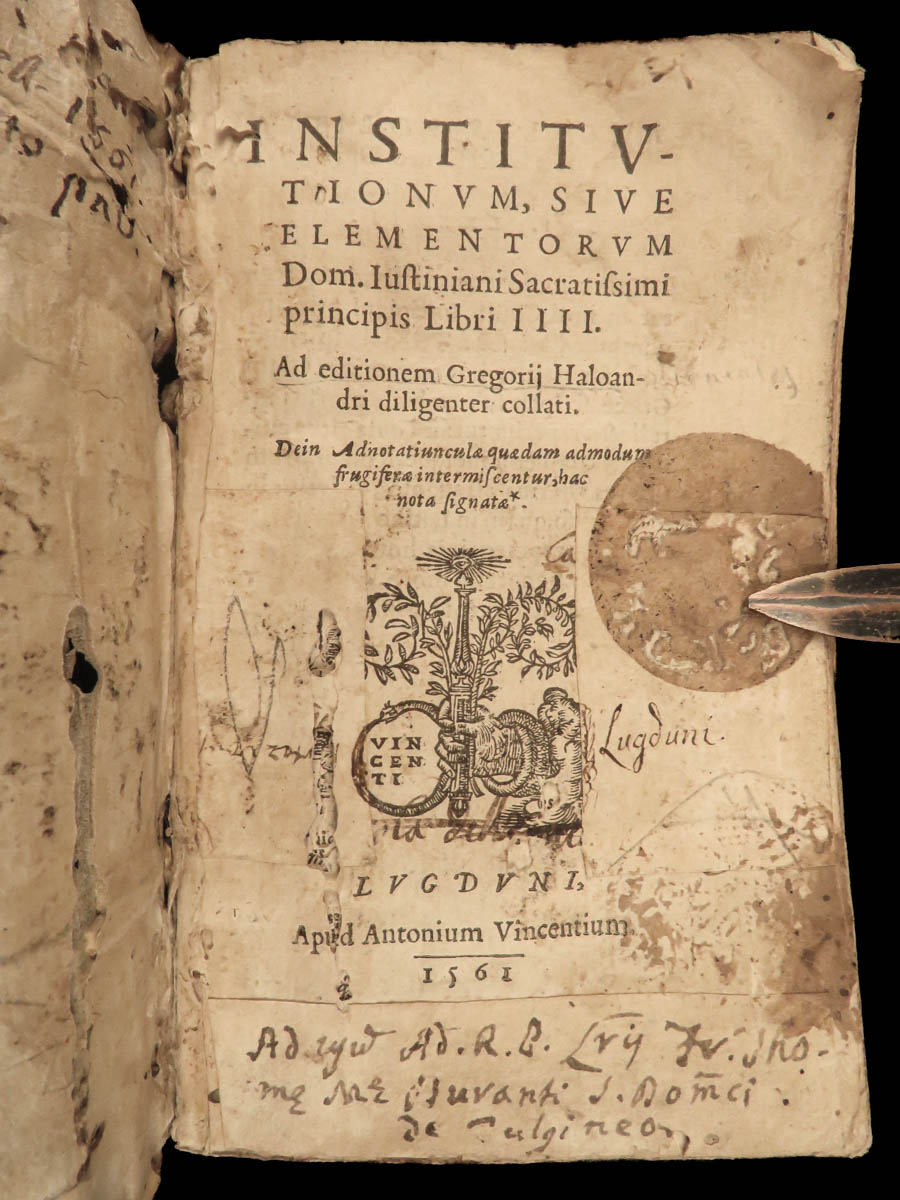 INSTITV-
TIONVM, SIVE
ELEMENTORVM
Dom. Iuſtiniani Sacratiſsimi
principis Libri IIII.
Ad editionem Gregorij Haloan-
dri diligenter collati.
Dein Adnotatiunculæ quædam admodum
frugiferæ intermiſcentur, hac
nota ſignatæ*.
VIN
CEN
TI
Lugduni.
LVGDVNI,
Apud Antonium Vincentium.
1561
Ad Ad. R. P. Fr. Tho-
mę
de